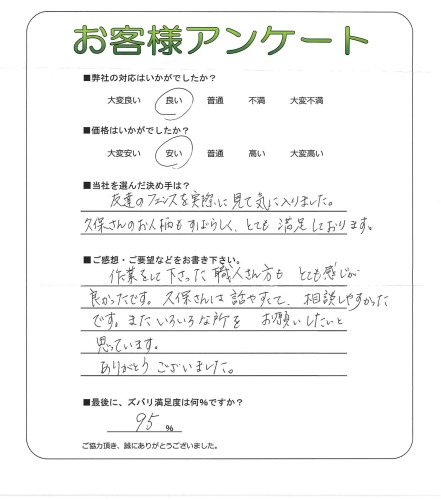 お客様アンケート
■弊社の対応はいかがでしたか?
大変良い 良い 普通 不満 大変不満
■価格はいかがでしたか?
大変安い 安い 普通 高い 大変高い
■当社を選んだ決め手は?
友達のフェンスを実際に見て気に入りました。
久保さんのお人柄もすばらしく、とても満足しております。
■ご感想・ご要望などをお書き下さい。
作業をして下さった職人さん方も とても感じが
良かったです。久保さんは話やすくて、相談しやすかった
です。またいろいろな所を お願いしたいと
思っています。
ありがとうございました。
■最後に、ズバリ満足度は何%ですか?
95 %
ご協力頂き、誠にありがとうございました。